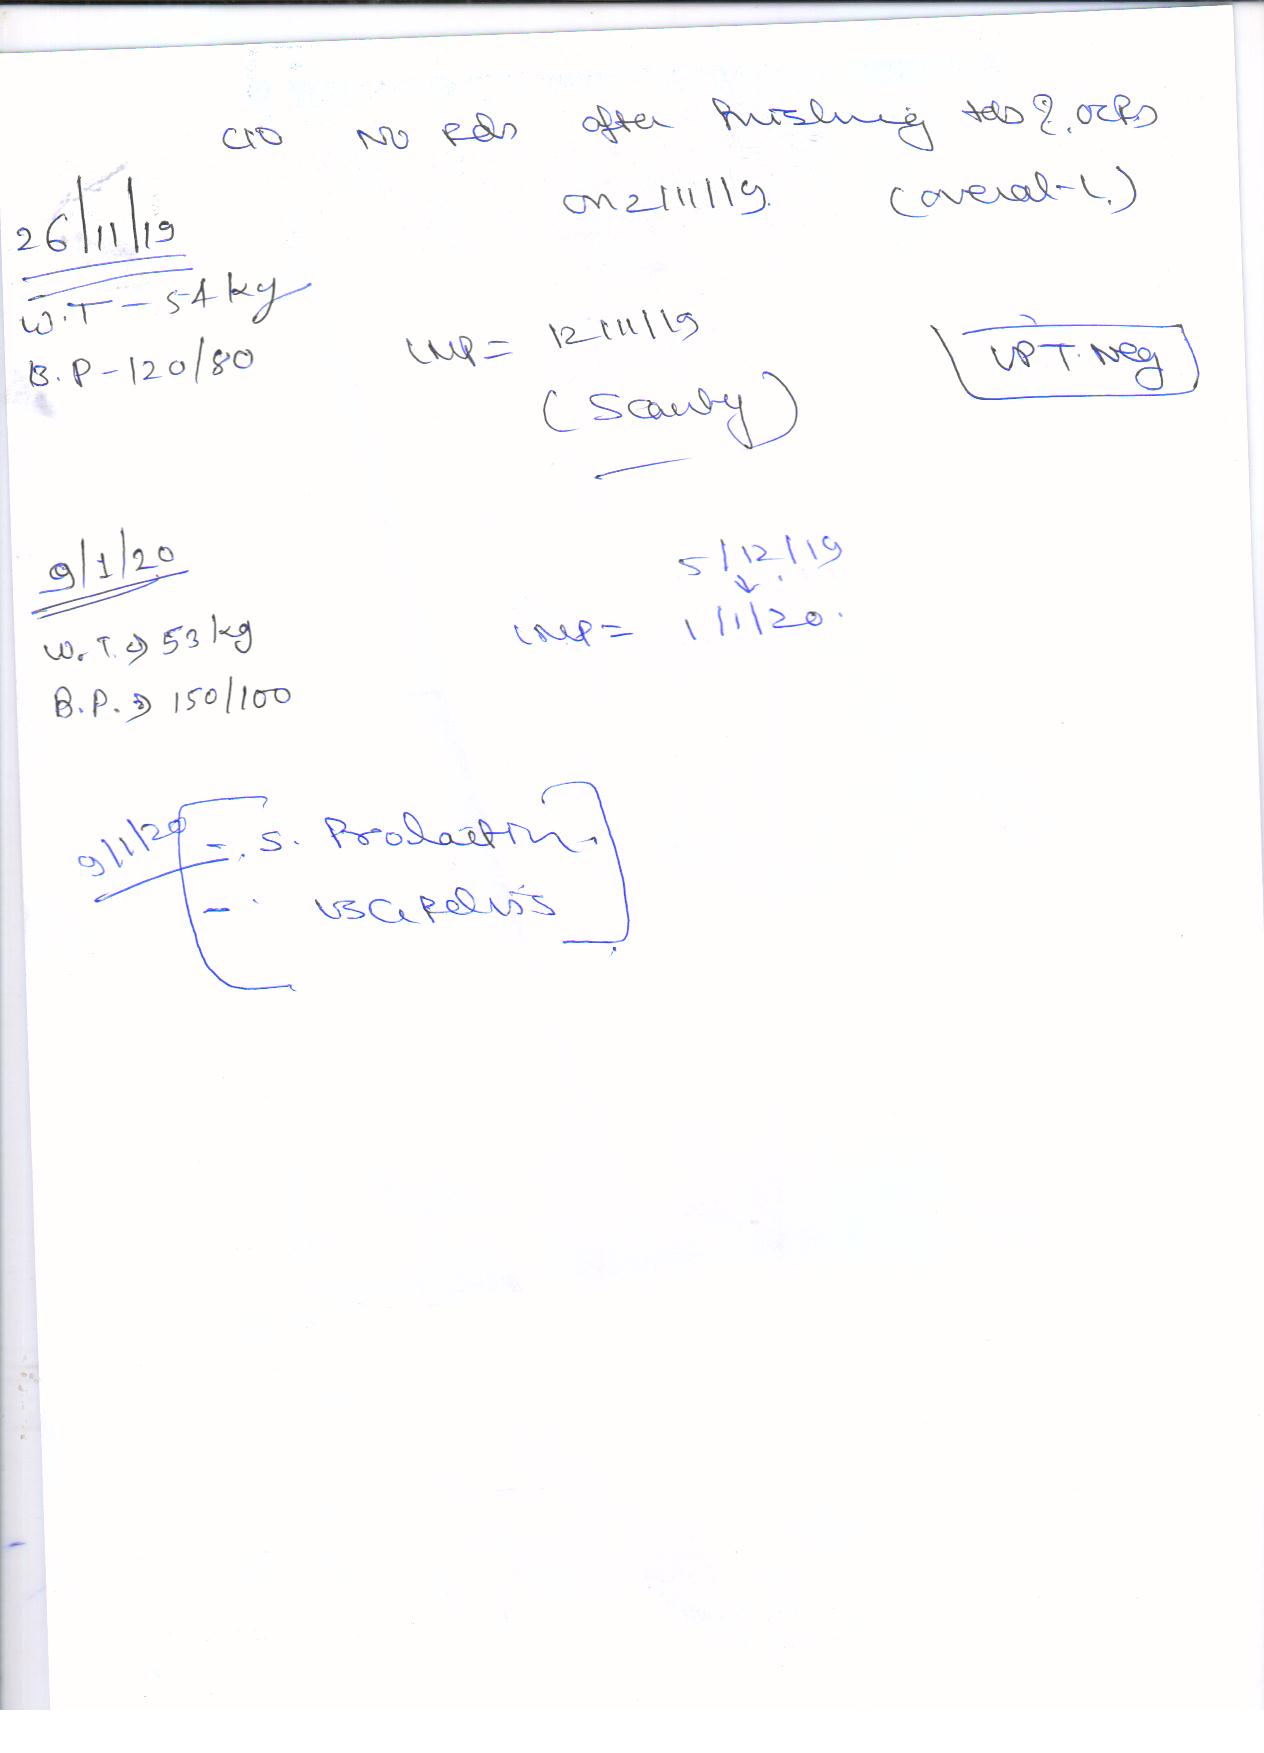 c/o No Pds after finishing tds ?. OCPs
on 21/11/19. (overal-L)
26/11/19
W.T - 54 kg
B.P - 120/80
LMP = 12/11/19
(Scanty)
UPT. Neg
9/1/20
5/12/19
W.T. → 53 kg
LMP = 1/1/20.
B.P. → 150/100
9/1/20
- S. Prolactin
- USG Pelvis